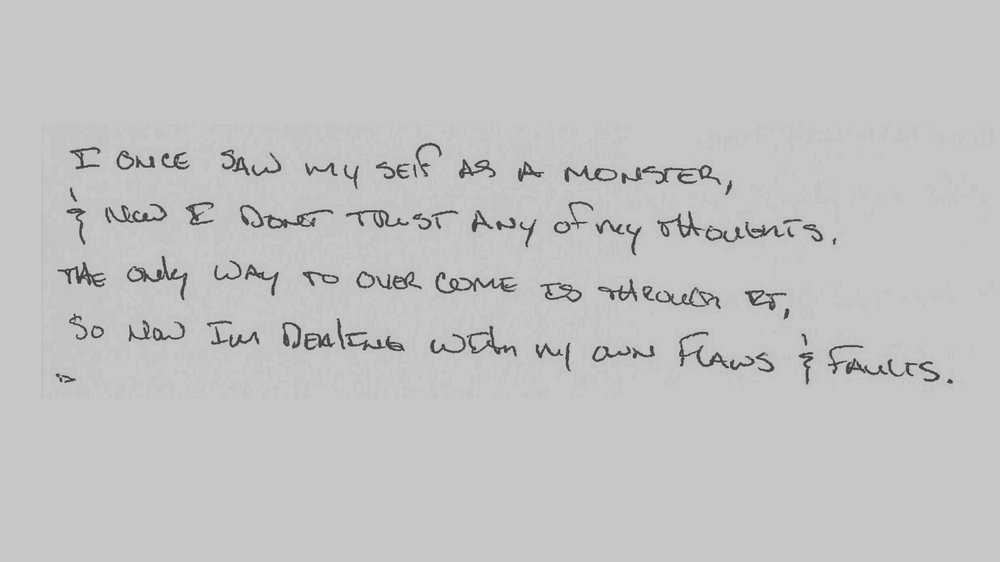 I ONCE SAW MY SELF AS A MONSTER,
& NOW I DONT TRUST ANY OF MY THOUGHTS.
THE ONLY WAY TO OVER COME IS THROUGH IT,
SO NOW IM DEALING WITH MY OWN FLAWS & FAULTS.